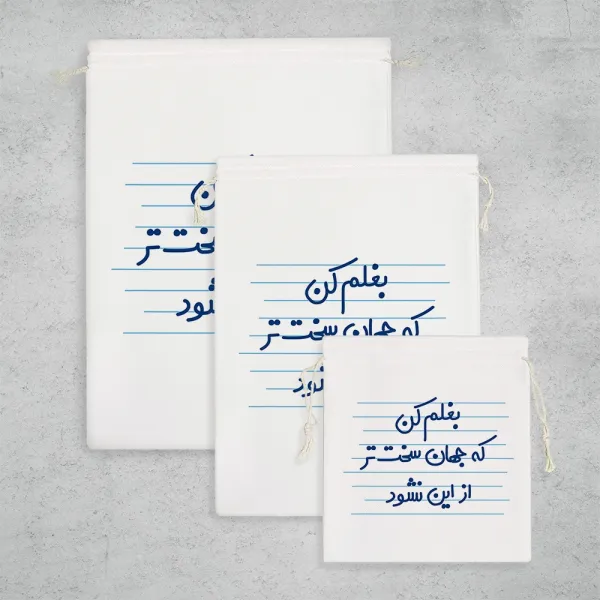 ن
سخت‌تر
شود
بغلم کن
که جهان سخت‌تر
نشود
بغلم کن
که جهان سخت‌تر
از این نشود